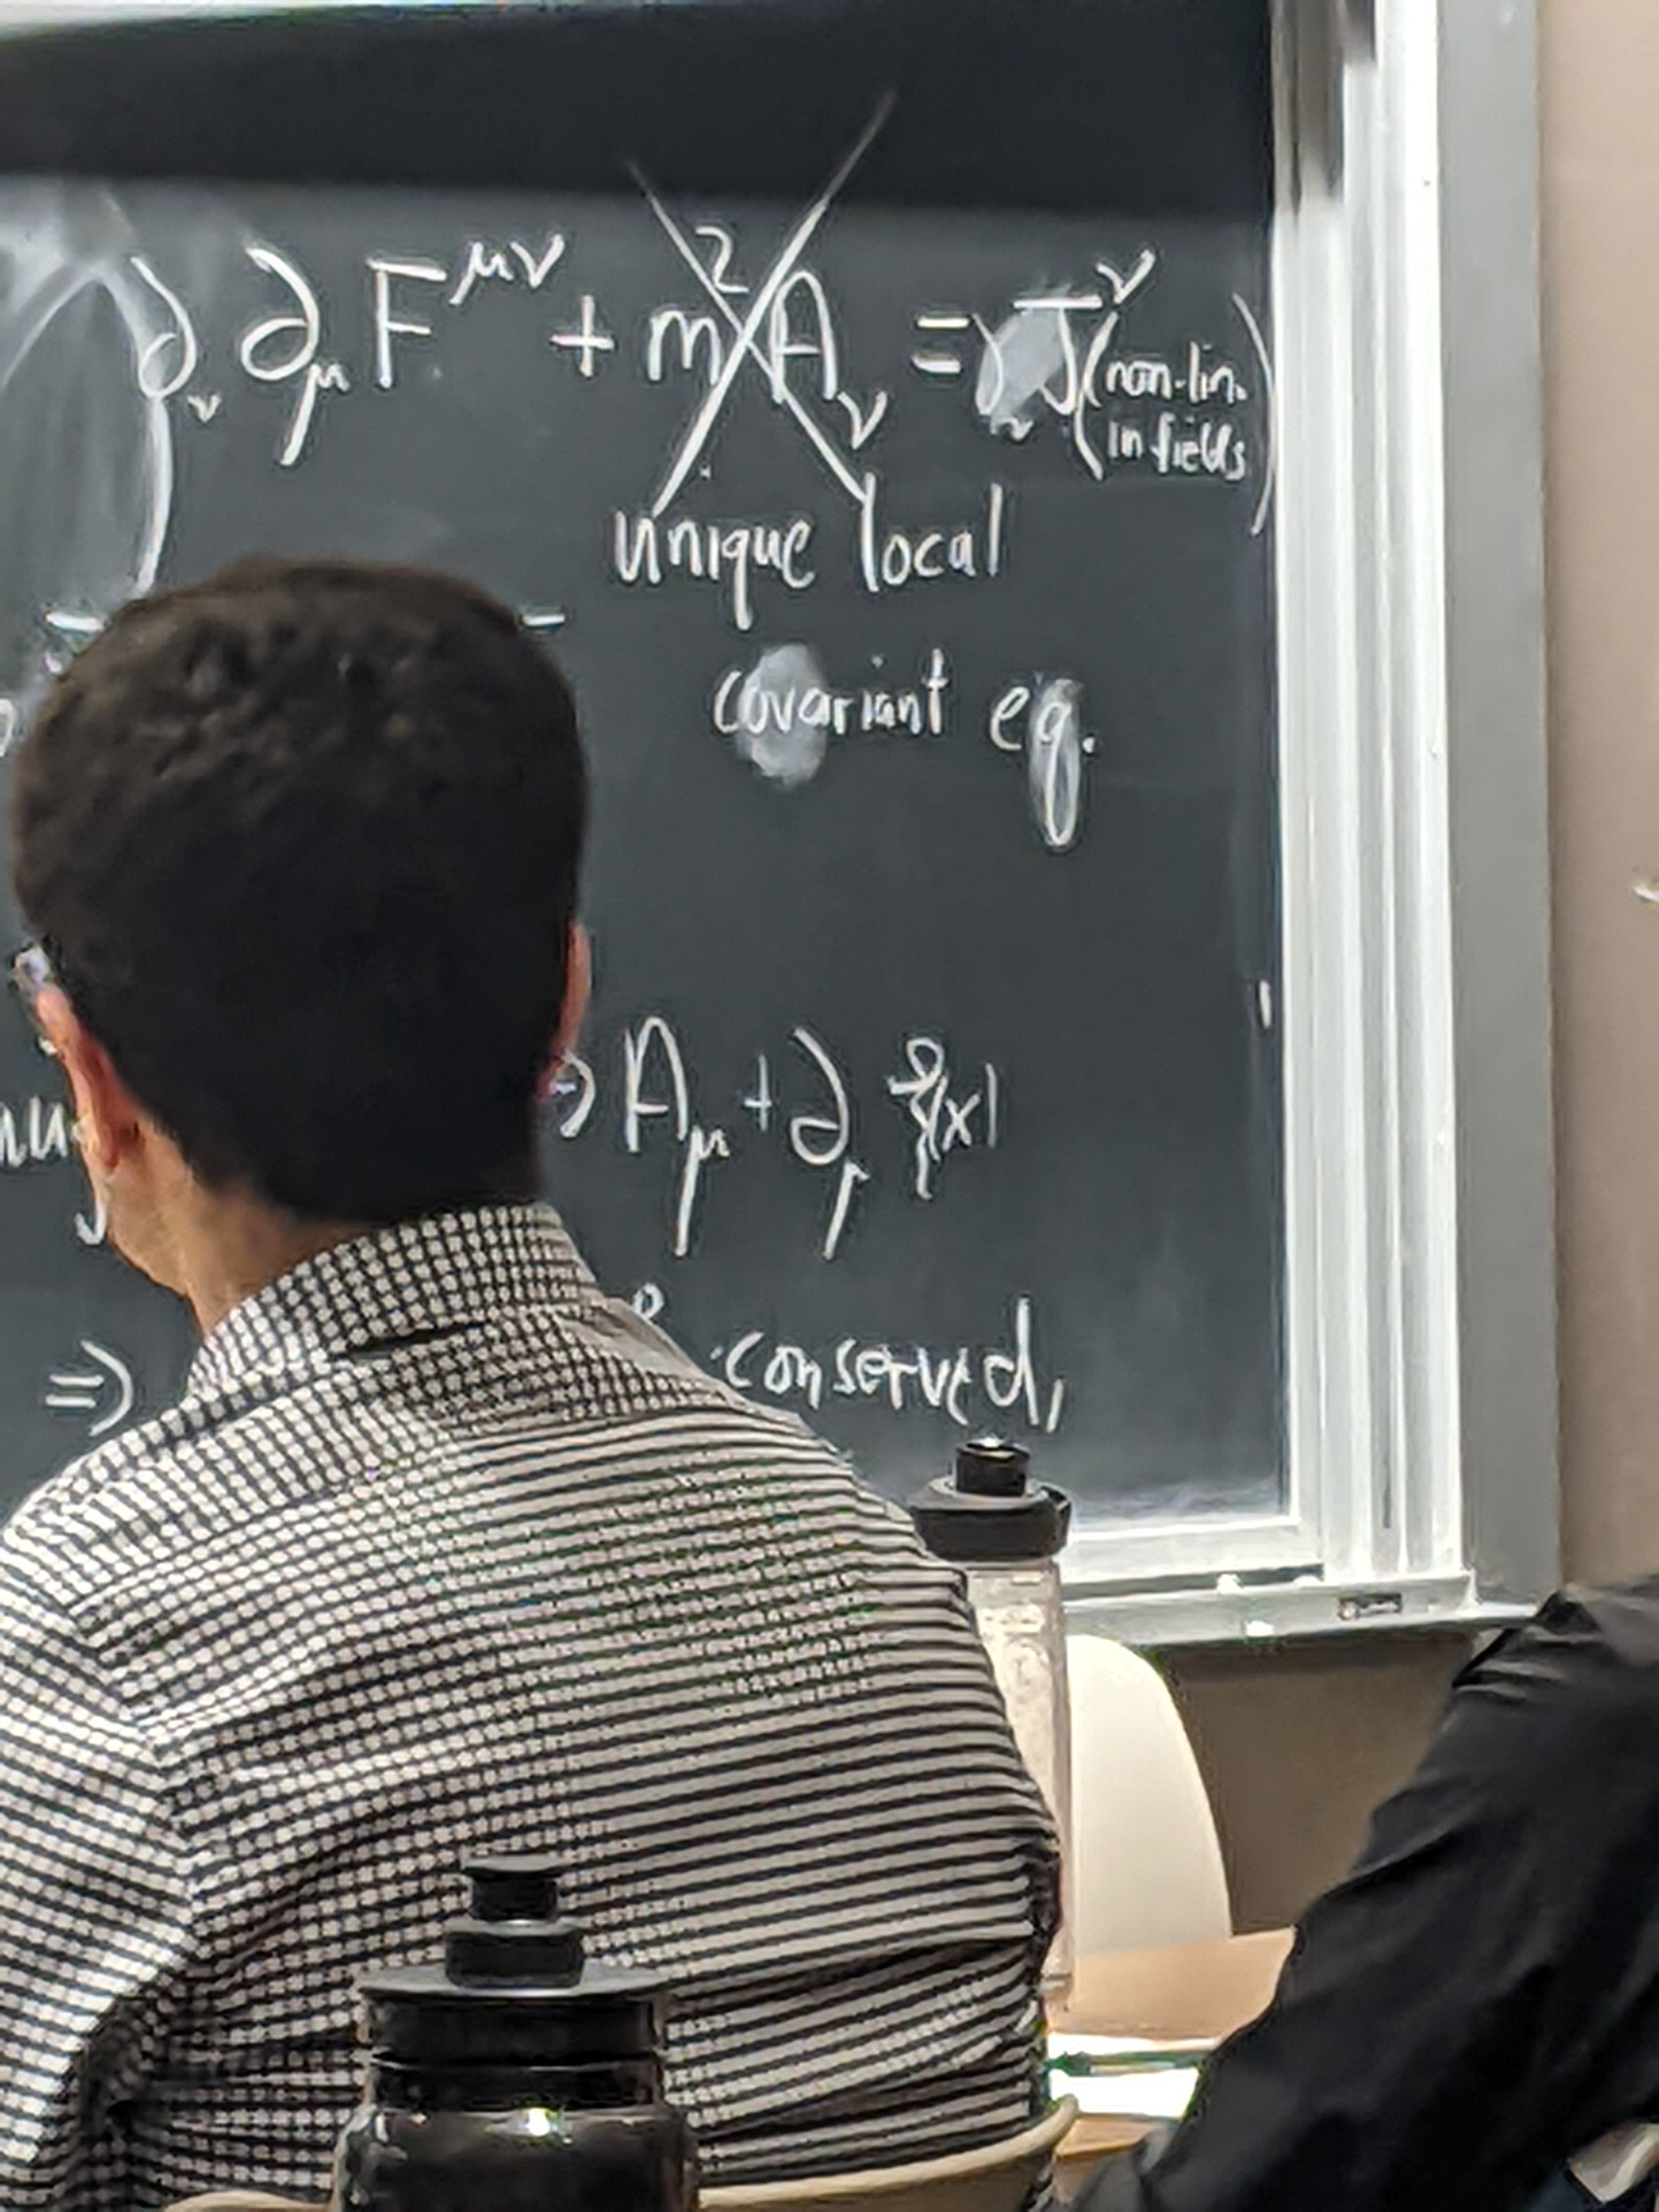 ∂_ν ∂_μ F^{μν} + m² A_ν = ∂_ν J^ν (non-lin. in fields)
unique local
covariant eq.
A_μ + ∂_μ ξ(x)
⇒ conserved,